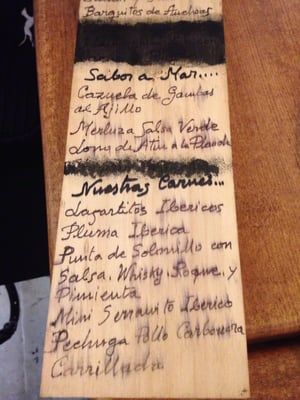 Barquitos de Anchoas
Sabor a Mar....
Cazuela de Gambas
al Ajillo
Merluza Salsa Verde
Lomo de Atun a la Plancha
Nuestras Carnes...
Lagartitos Ibericos
Pluma Iberica
Punta de Solomillo con
Salsa, Whisky, Roque, y
Pimienta
Mini Serranito Iberico
Pechuga Pollo Carbonara
Carrillada